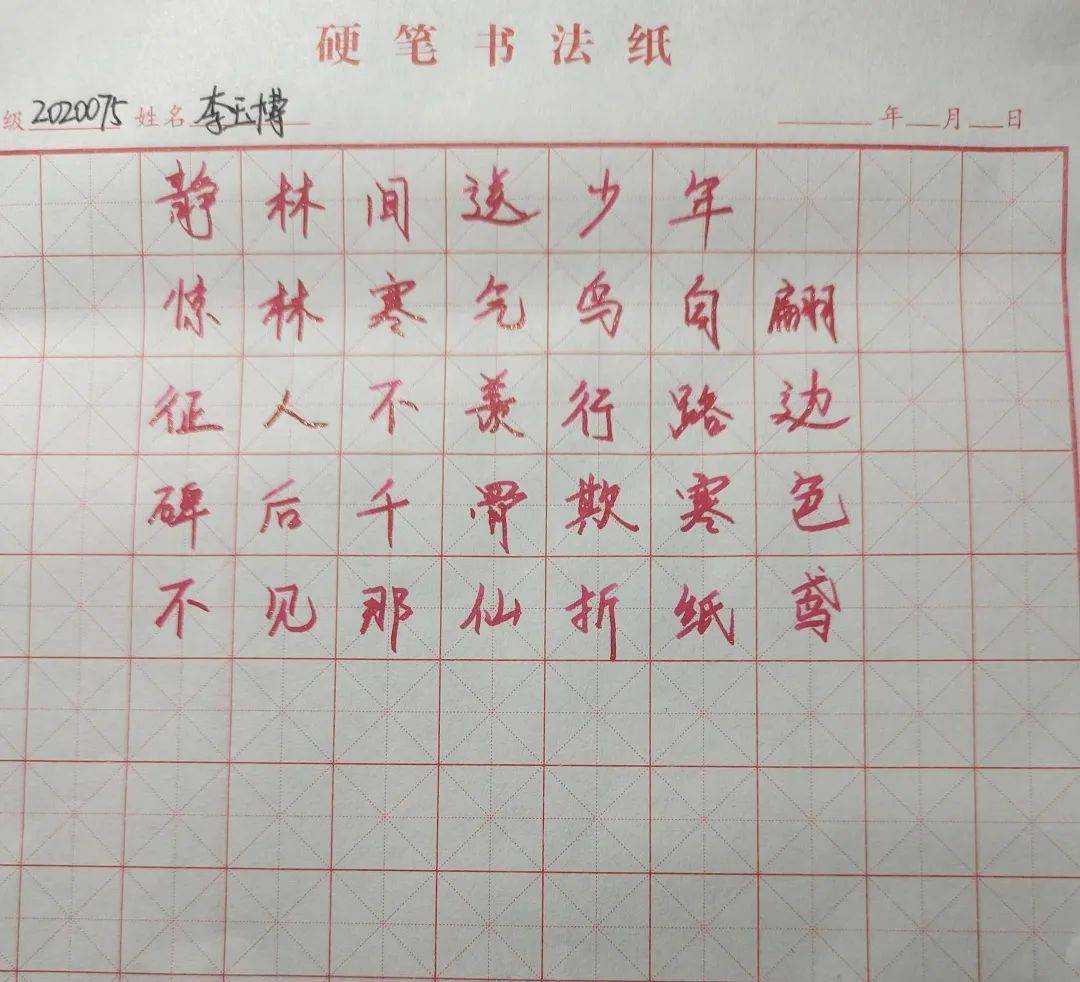 硬笔书法纸
级 2020075 姓名 李玉博 年 月 日
静林间送少年
惊林寒气鸟自翩
征人不羡行路边
碑后千骨欺寒色
不见那仙折纸鸢